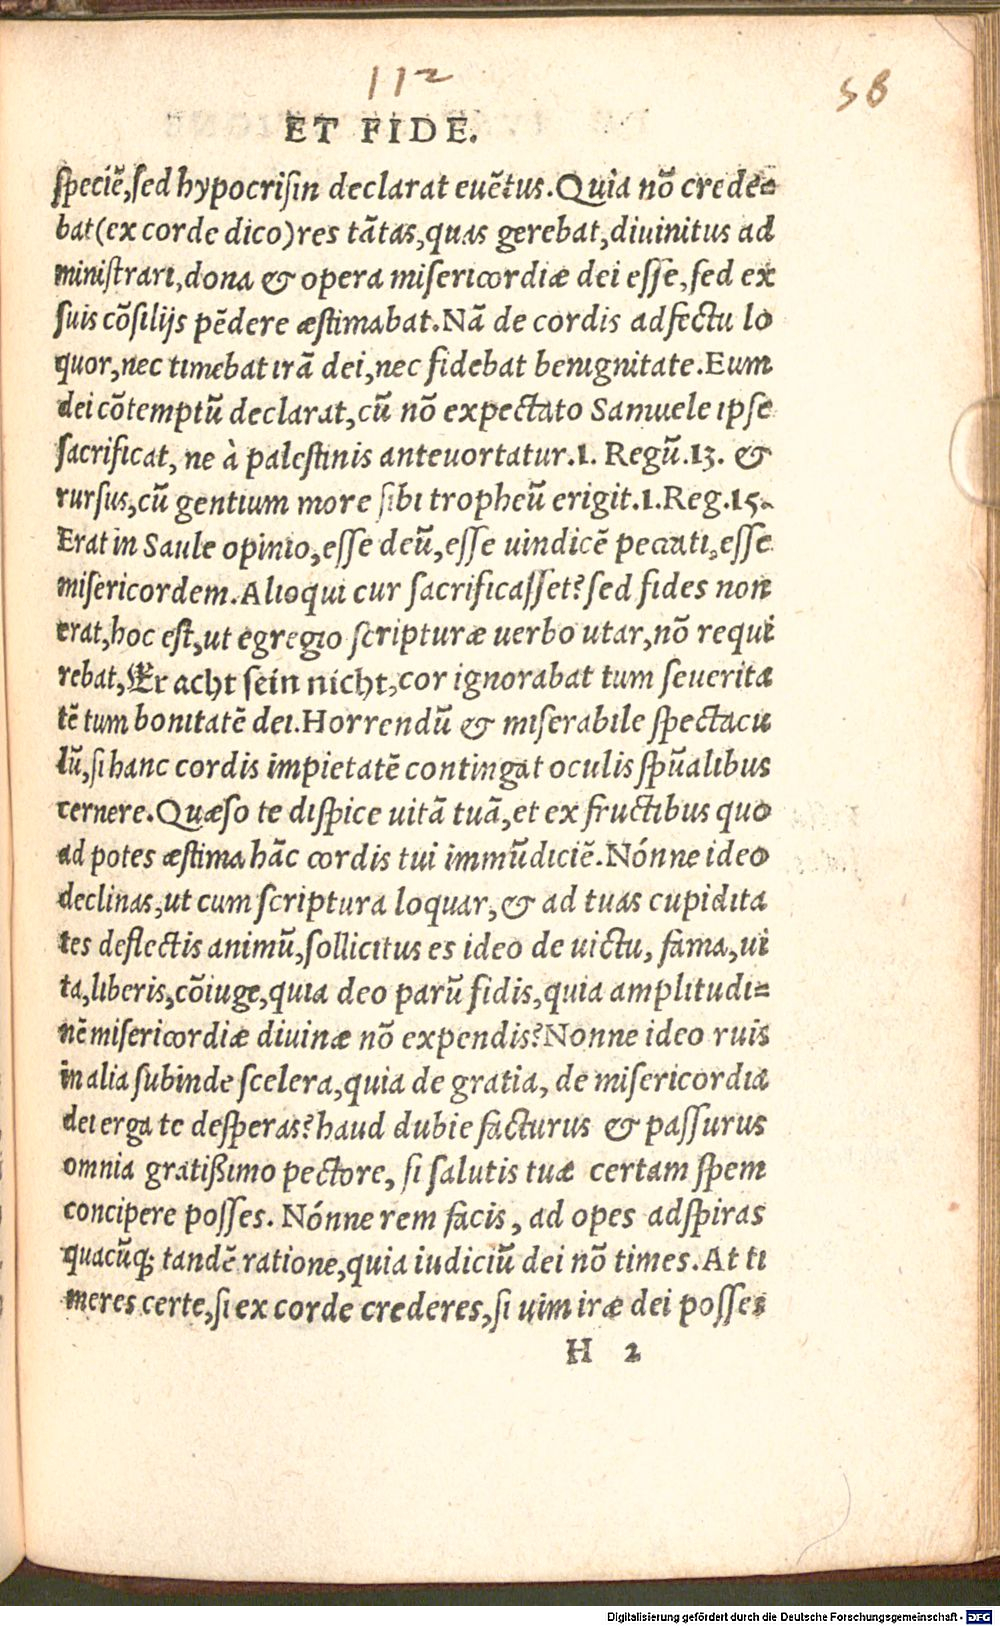 112
58
ET FIDE.
speciẽ, sed hypocrisin declarat euẽtus. Quia nõ crede=
bat (ex corde dico) res tãtas, quas gerebat, diuinitus ad
ministrari, dona & opera misericordiæ dei esse, sed ex
suis cõsilijs pẽdere æstimabat. Nã de cordis adfectu lo
quor, nec timebat irã dei, nec fidebat benignitate. Eum
dei cõtemptũ declarat, cũ nõ expectato Samuele ipse
sacrificat, ne à palestinis anteuortatur. 1. Regũ. 13. &
rursus, cũ gentium more sibi tropheũ erigit. 1. Reg. 15.
Erat in Saule opinio, esse deũ, esse uindicẽ peccati, esse
misericordem. Alioqui cur sacrificasset? sed fides non
erat, hoc est, ut egregio scripturæ uerbo utar, nõ requi
rebat, Er acht sein nicht, cor ignorabat tum seuerita
tẽ tum bonitatẽ dei. Horrendũ & miserabile spectacu
lũ, si hanc cordis impietatẽ contingat oculis spũalibus
cernere. Quæso te dispice uitã tuã, et ex fructibus quo
ad potes æstima hãc cordis tui immũdiciẽ. Nónne ideo
declinas, ut cum scriptura loquar, & ad tuas cupidita
tes deflectis animũ, sollicitus es ideo de uictu, fama, ui
ta, liberis, cõiuge, quia deo parũ fidis, quia amplitudi=
nẽ misericordiæ diuinæ nõ expendis? Nonne ideo ruis
in alia subinde scelera, quia de gratia, de misericordia
dei erga te desperas? haud dubie facturus & passurus
omnia gratißimo pectore, si salutis tuæ certam spem
concipere posses. Nónne rem facis, ad opes adspiras
quacũq; tandẽ ratione, quia iudiciũ dei nõ times. At ti
meres certe, si ex corde crederes, si uim iræ dei posses
H 2
Digitalisierung gefördert durch die Deutsche Forschungsgemeinschaft - DFG